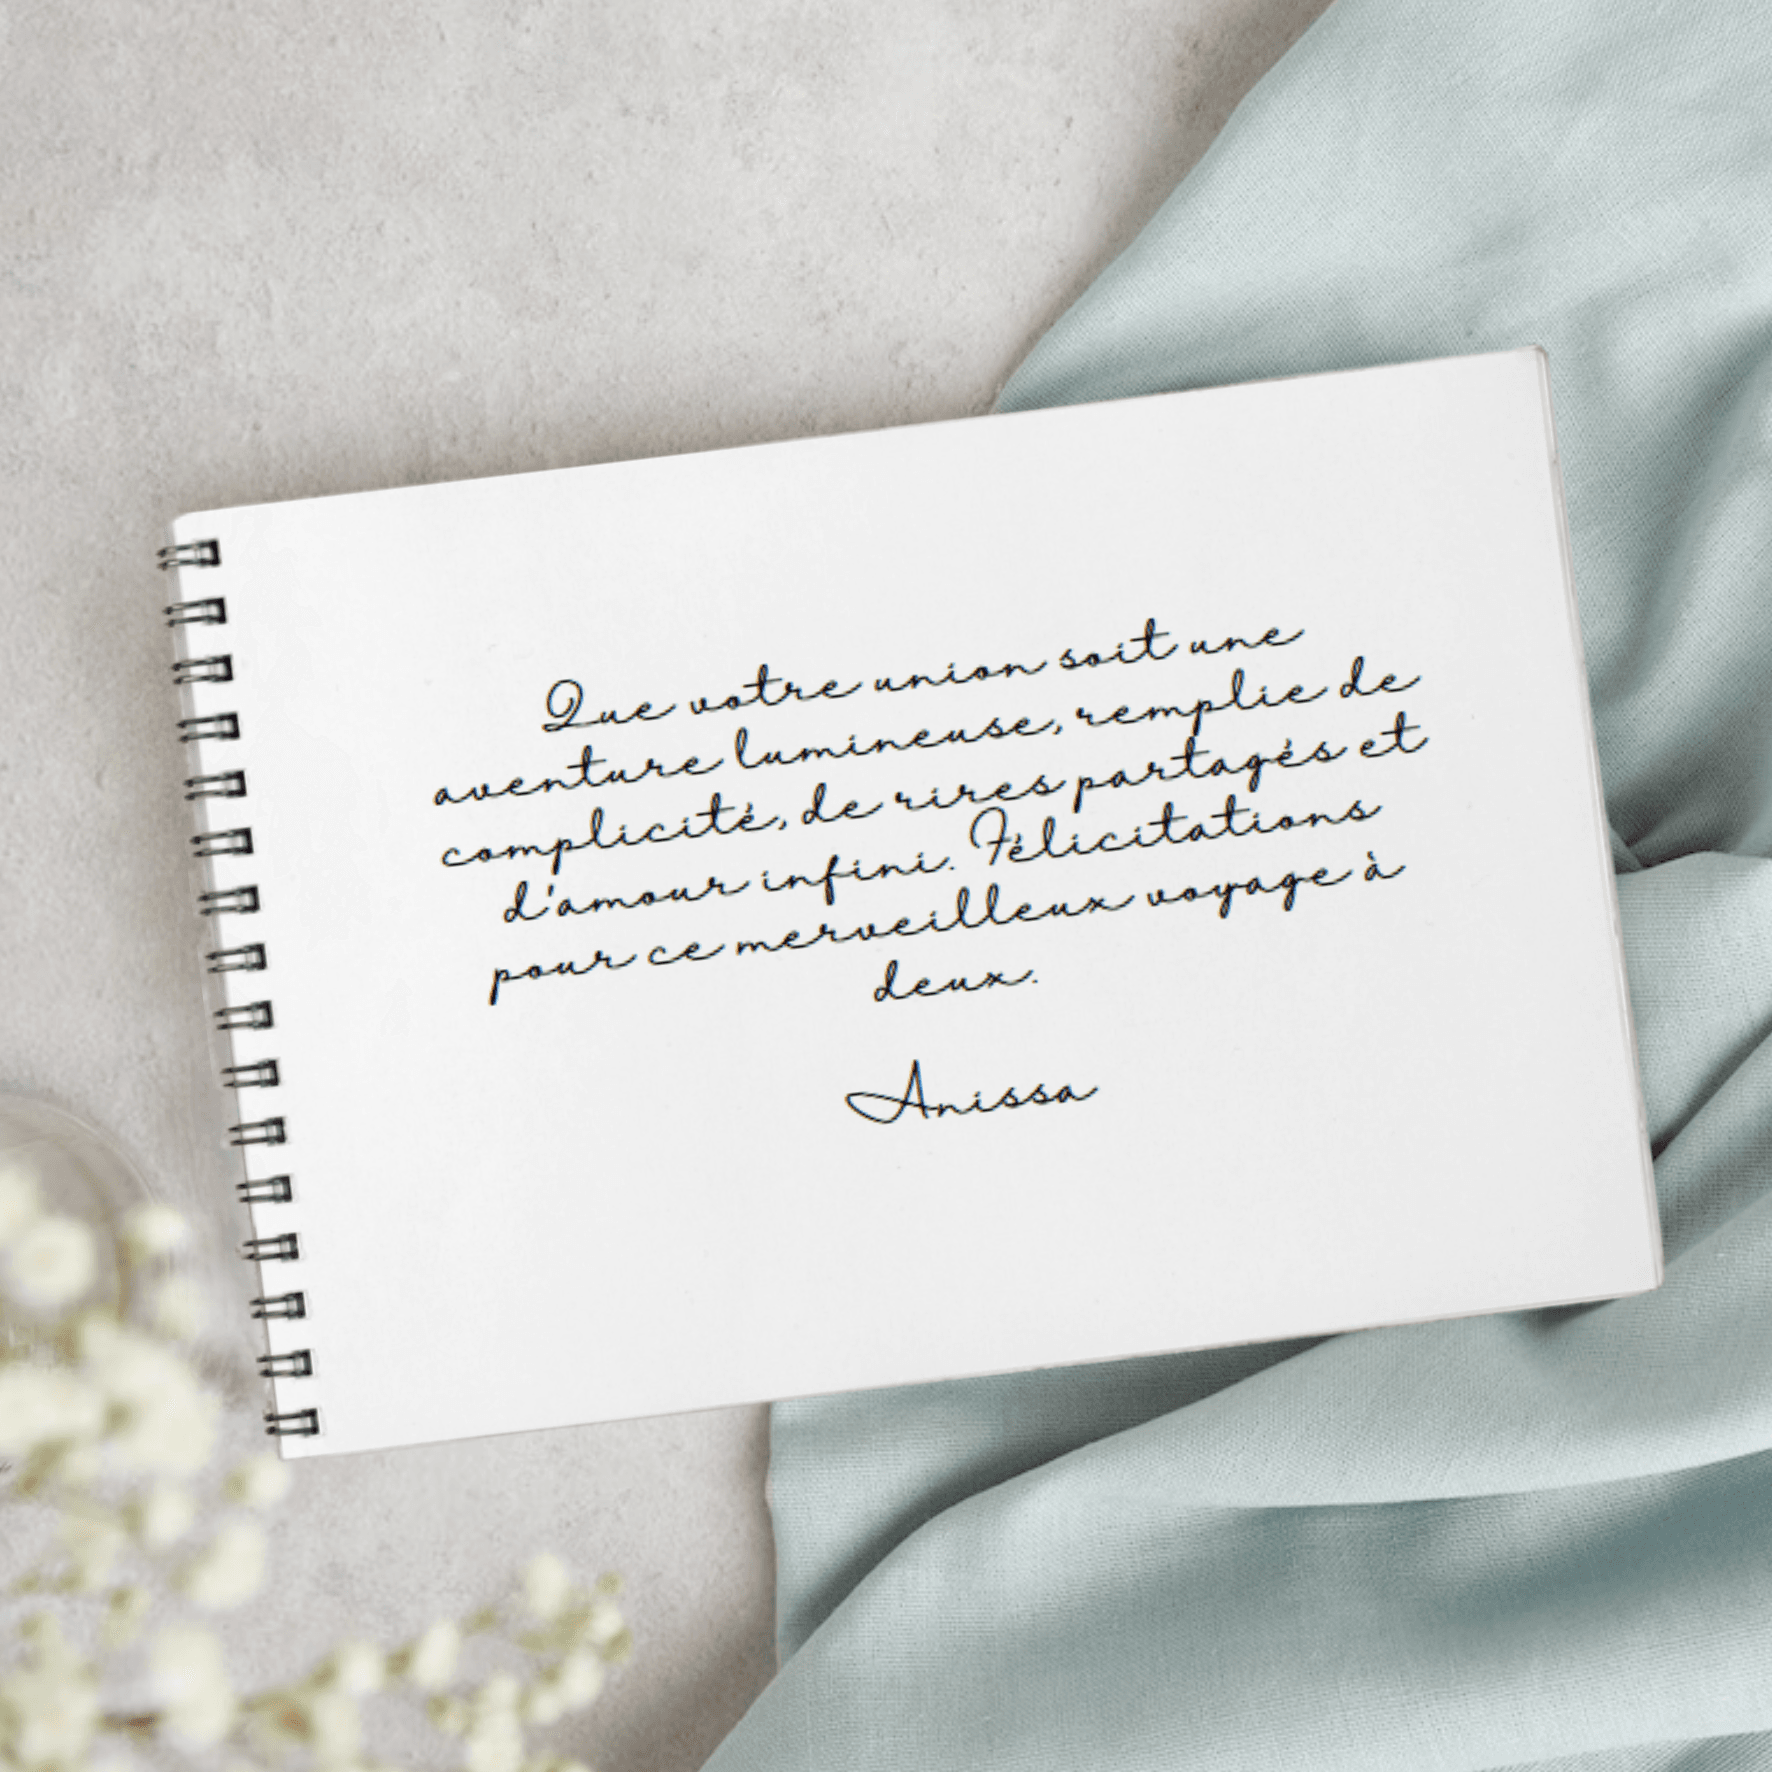 Que votre union soit une
aventure lumineuse, remplie de
complicité, de rires partagés et
d'amour infini. Félicitations
pour ce merveilleux voyage à
deux.
Anissa